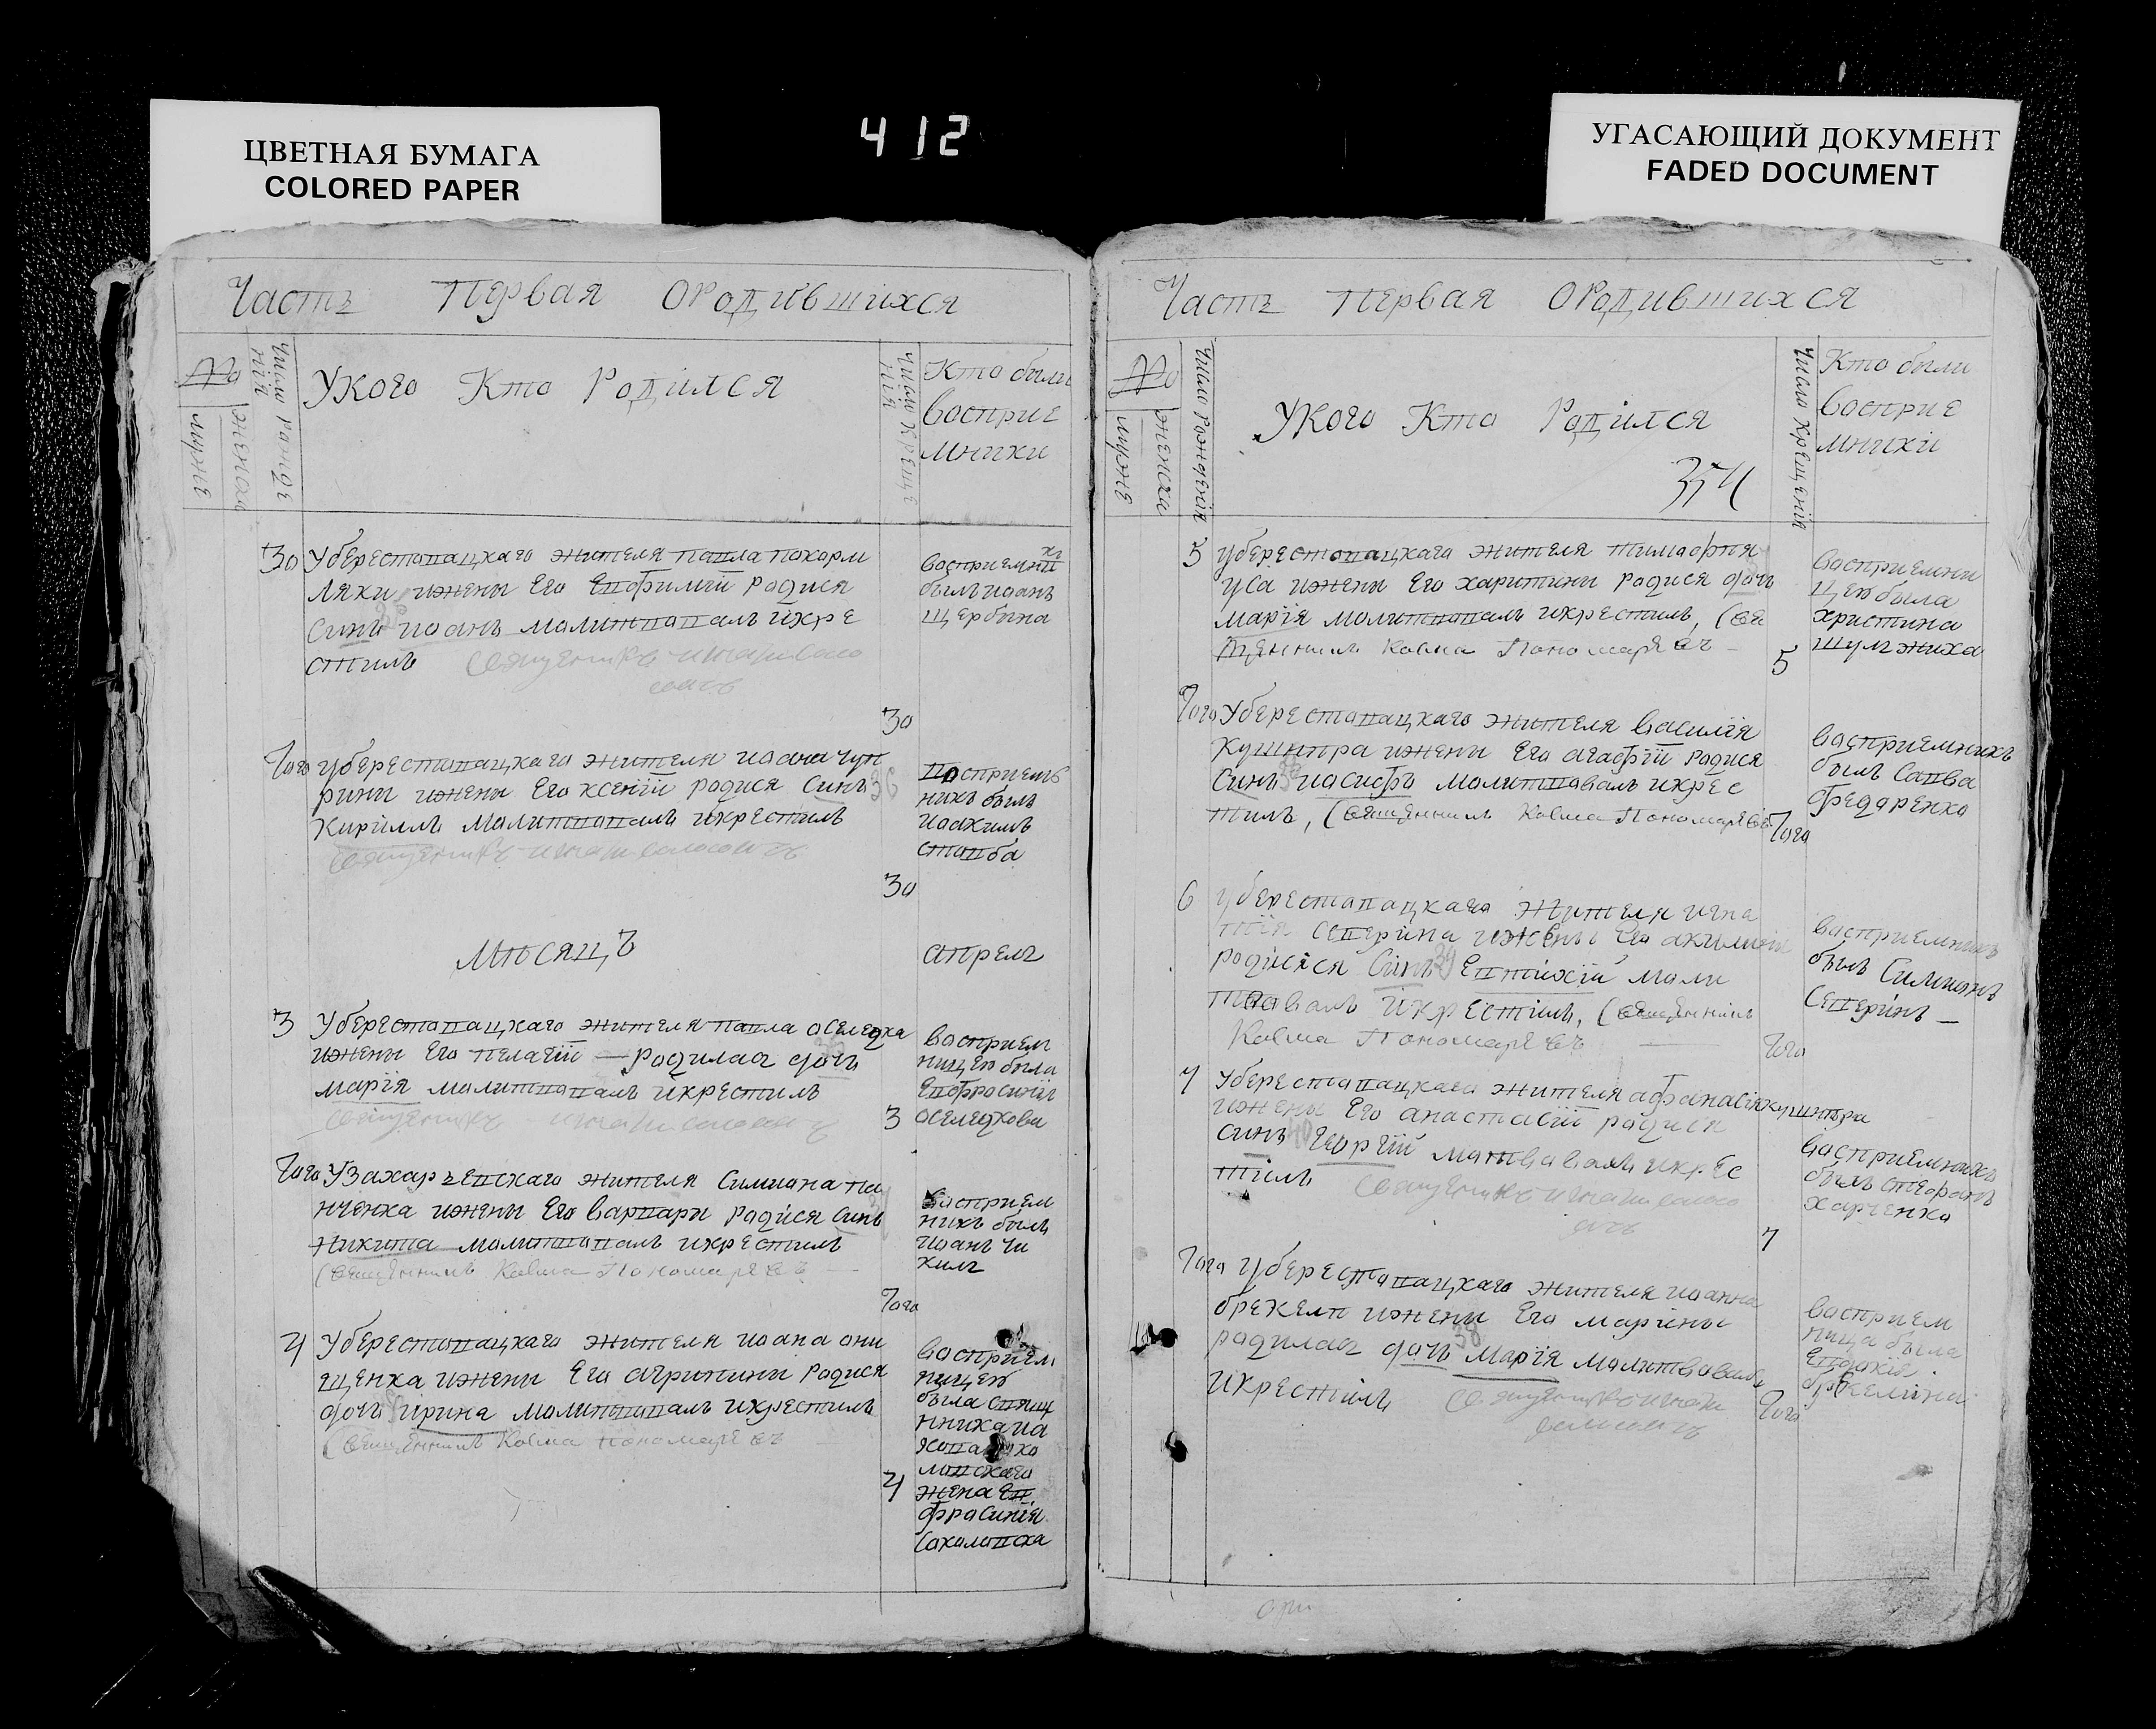 ЦВЕТНАЯ БУМАГА
COLORED PAPER
412
УГАСАЮЩИЙ ДОКУМЕНТ
FADED DOCUMENT
Часть Первая ОРодившихся
№
мужне
женска
Число Рожде
нія
Укого Кто Родился
Число Креще
нія
Кто были
Восприе
мники
30 Уберестовацкаго жителя павла покорм
ляки ижены Его Евфимїи родися
Синъ иоанъ молитвовалъ икре
стилъ Священникъ
30
восприемни
къ
былъ иоанъ
щербина
Того уберестовацкаго жителя иоана чуп
рини ижены Его ксенїи родися Синъ 36
Кириллъ молитвовалъ икрестилъ
Священникъ
30
восприем
никъ былъ
иоакимъ
стовба
Мѣсяцъ апрель
3 Уберестовацкаго жителя павла оселедка
ижены Его пелагїи — родилас дочь
марїя молитвовалъ икрестилъ
Священникъ
3
восприем
ницею была
Евфросинїя
оселедкова
Того Узахарʼевскаго жителя Симиона па
нченка ижены Его варвары родися синъ
Никита молитвовалъ икрестилъ
Священникъ Козма Пономаревъ
Того
восприем
никъ былъ
иоанъ чи
жикъ
4 Уберестовацкаго жителя иоана они
щенка ижены Его агрипини родися
дочь ирина молитвовалъ икрестилъ
Священникъ Козма пономаревъ
4
восприем
ницею
была свящ
нника иа
жена Ев
фросинїя
Соколовска
Часть Первая ОРодившихся
№
мужне
женска
Число Рожденія
Укого Кто Родился
354
Число Крещенія
Кто были
Восприе
мники
5 уберестовацкаго жителя тимофея
уса ижены Его харитины родися дочь
марїя молитвовалъ икрестилъ, Свя
щенникъ Козма Пономаревъ
5
восприемни
цею была
христина
шулжиха
Того Уберестовацкаго жителя василїя
Кушнѣра ижены Его агафїи родися
Синъ иосифъ молитвовалъ икрес
тилъ, Священникъ Козма Пономаревъ
Того
восприемникъ
былъ Савва
федоренко
6 уберестовацкаго жителя игна
тїя Северина ижены Его акилины
родися Синъ 39 Евтихїй моли
твовалъ икрестилъ, Священникъ
Козма Пономаревъ
Того
восприемникъ
былъ Симионъ
Северинъ —
7 Уберестовацкаго жителя афанасїя кушнѣра
ижены Его анастасїи родися
синъ 40 Георгїй молитвовалъ икрес
тилъ Священникъ
7
восприемникъ
былъ стефанъ
харченко
Того уберестовацкаго жителя иоанна
брекели ижены Его марины
родилас дочь 38 марїя молитвовалъ
икрестилъ Священникъ
Того
восприем
ница была
Евдокїя